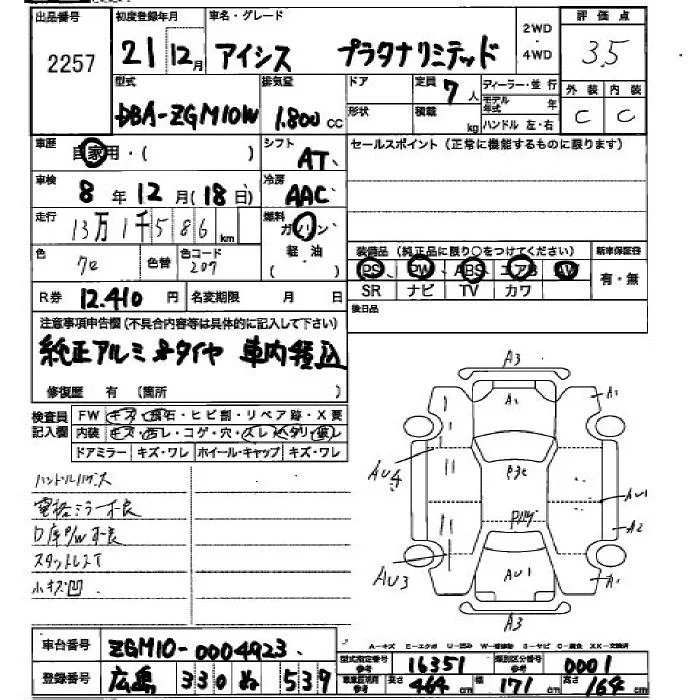 出品番号 初度登録年月 車名・グレード 2WD 評価点
2257 21 12月 アイシス プラタナリミテッド ・4WD 3.5
型式 排気量 ドア 定員 7人 ディーラー・並行 外装 内装
DBA-ZGM10W 1.800cc 形状 積載 kg モデル年式 年 C C
ハンドル 左・右
車歴 自家用・( ) シフト AT セールスポイント(正常に機能するものに限ります)
車検 8年12月(18日) 冷房 AAC
走行 13万1千586km 燃料 ガソリン
色 色替 色コード 207 軽油 装備品(純正品に限り○をつけてください) 新車保証書
( ) PS PW ABS エアB AW 有・無
R券 12.410円 名変期限 月 日 SR ナビ TV カワ
注意事項申告欄(不具合内容等は具体的に記入して下さい) 後日品
純正アルミ&タイヤ 車内積込
修復歴 有 (箇所 )
検査員記入欄 FW キズ・飛石・ヒビ割・リペア跡・X要
内装 キズ・汚レ・コゲ・穴・スレ・ヘタリ・破レ
ドアミラー キズ・ワレ ホイール・キャップ キズ・ワレ
電格ミラー不良
スタットレスT
小キズ凹
A3
A2 A1
AU4
AU1
A2
AU3 AU1 A1
A3
車台番号 ZGM10-0004923
型式指定番号 16351 類別区分番号 0001
登録番号 広島 330 ぬ 539
長さ 464cm 幅 171cm 高さ 164cm